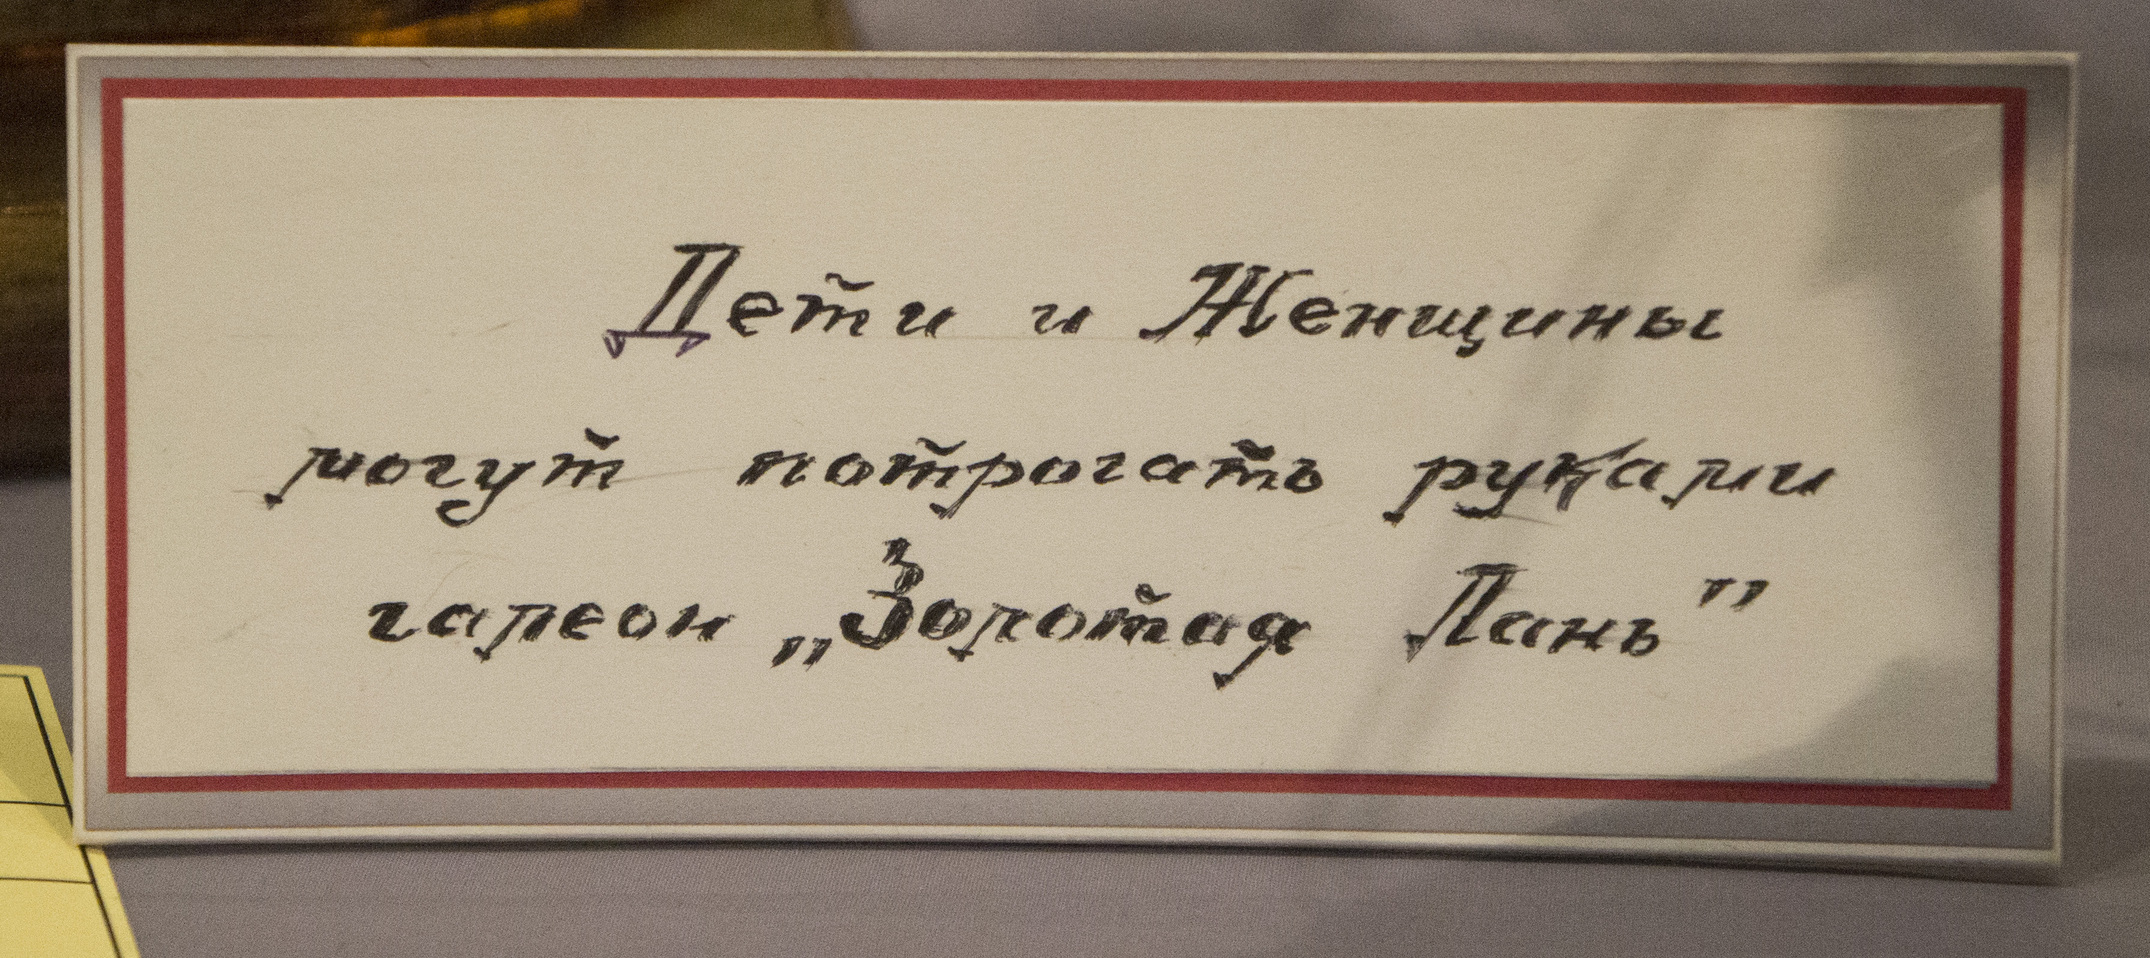 Дети и Женщины
могут потрогать руками
галеон „Золотая Лань"